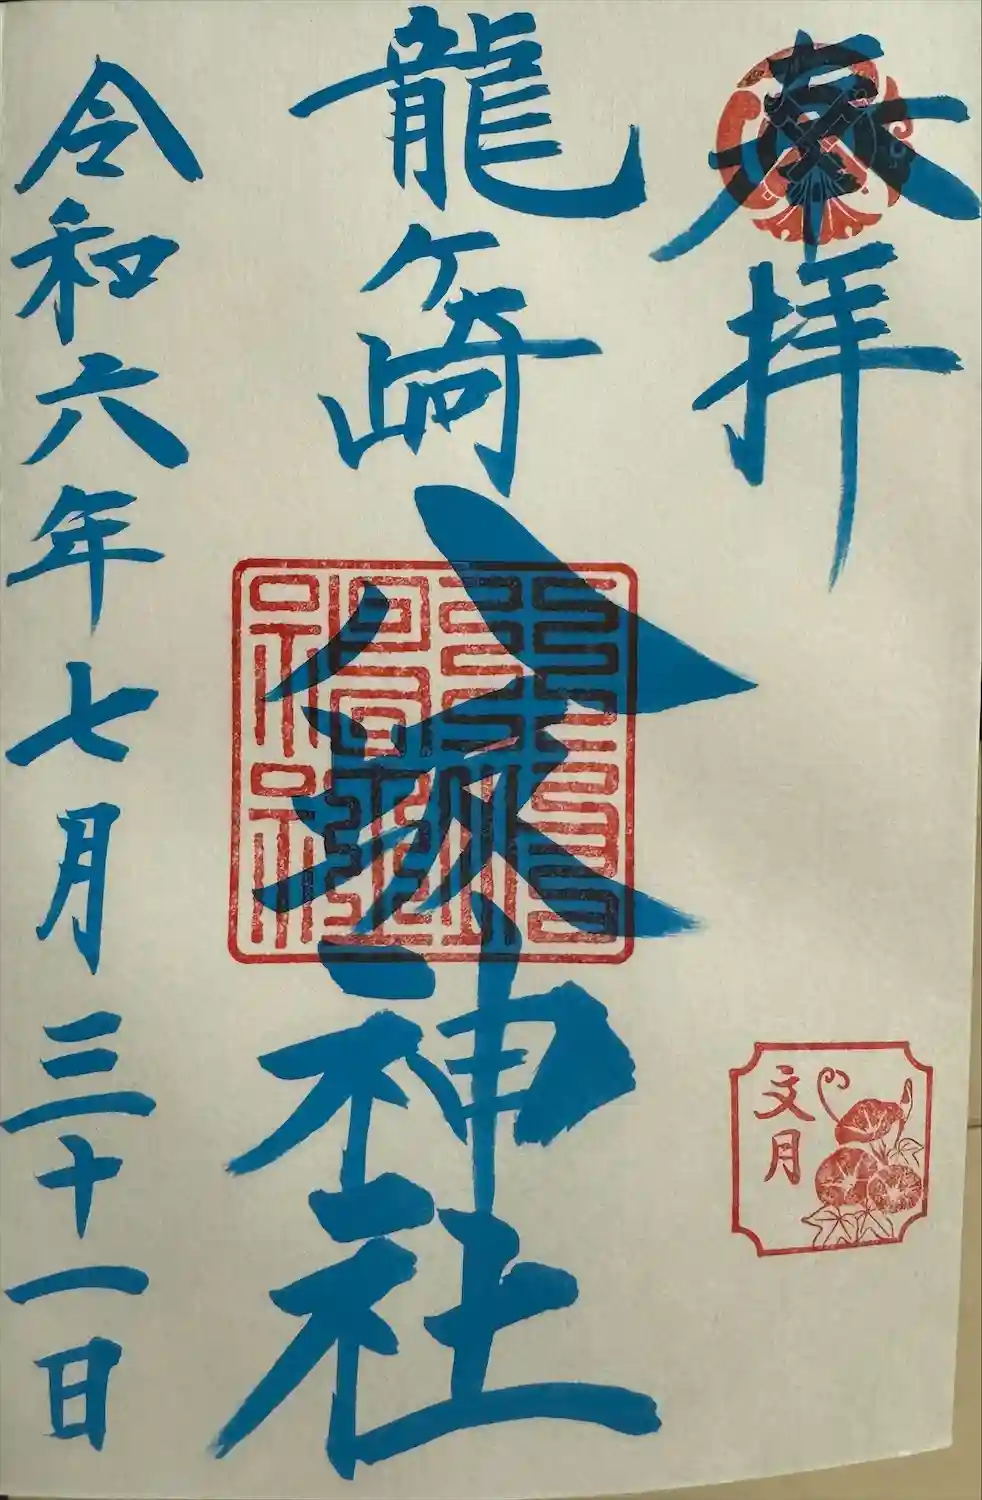 奉拝
文月
龍ヶ崎八坂神社
令和六年七月三十一日